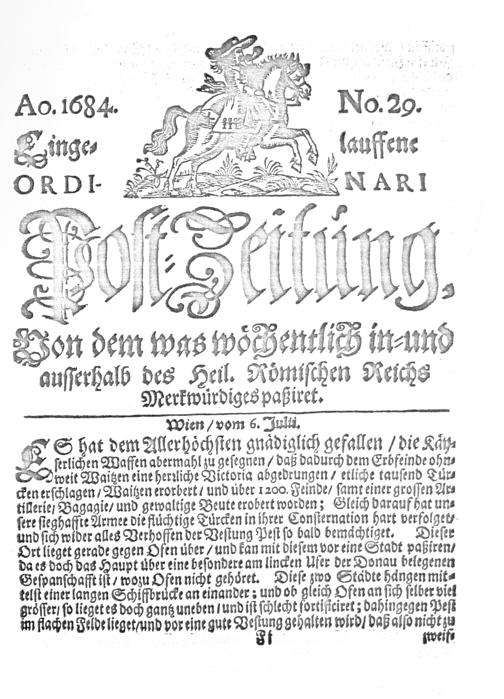 Ao. 1684.
No. 29.
Einge-
lauffene
ORDI-
NARI
Post-Zeitung,
Von dem was wöchentlich in-und
ausserhalb des Heil. Römischen Reichs
Merkwürdiges paßiret.
Wien / vom 6. Julii.
ES hat dem Allerhöchsten gnädiglich gefallen / die Käy-
serlichen Waffen abermahl zu gesegnen / daß dadurch dem Erbfeinde ohn-
weit Waitzen eine herzliche Victoria abgedrungen / etliche tausend Tür-
cken erschlagen / Waitzen erorbert / und über 1200. Feinde / samt einer grossen Ar-
tillerie / Bagagie / und gewaltige Beute erobert worden; Gleich darauf hat un-
sere sieghaffte Armee die flüchtige Türcken in ihrer Consternation hart verfolget-
und sich wider alles Verhoffen der Vestung Pest so bald bemächtiget. Dieser
Ort lieget gerade gegen Ofen über / und kan mit diesem vor eine Stadt paßiren /
da es doch das Haupt über eine besondere am lincken Ufer der Donau belegenen
Gespanschafft ist / wozu Ofen nicht gehöret. Diese zwo Städte hängen mit-
telst einer langen Schiffbrücke an einander; und ob gleich Ofen an sich selber viel
grösser / so lieget es doch gantz uneben / und ist schlecht fortificiret; dahingegen Pest
im flachen Felde lieget / und vor eine gute Vestung gehalten wird / daß also nicht zu
Ff
zweif-